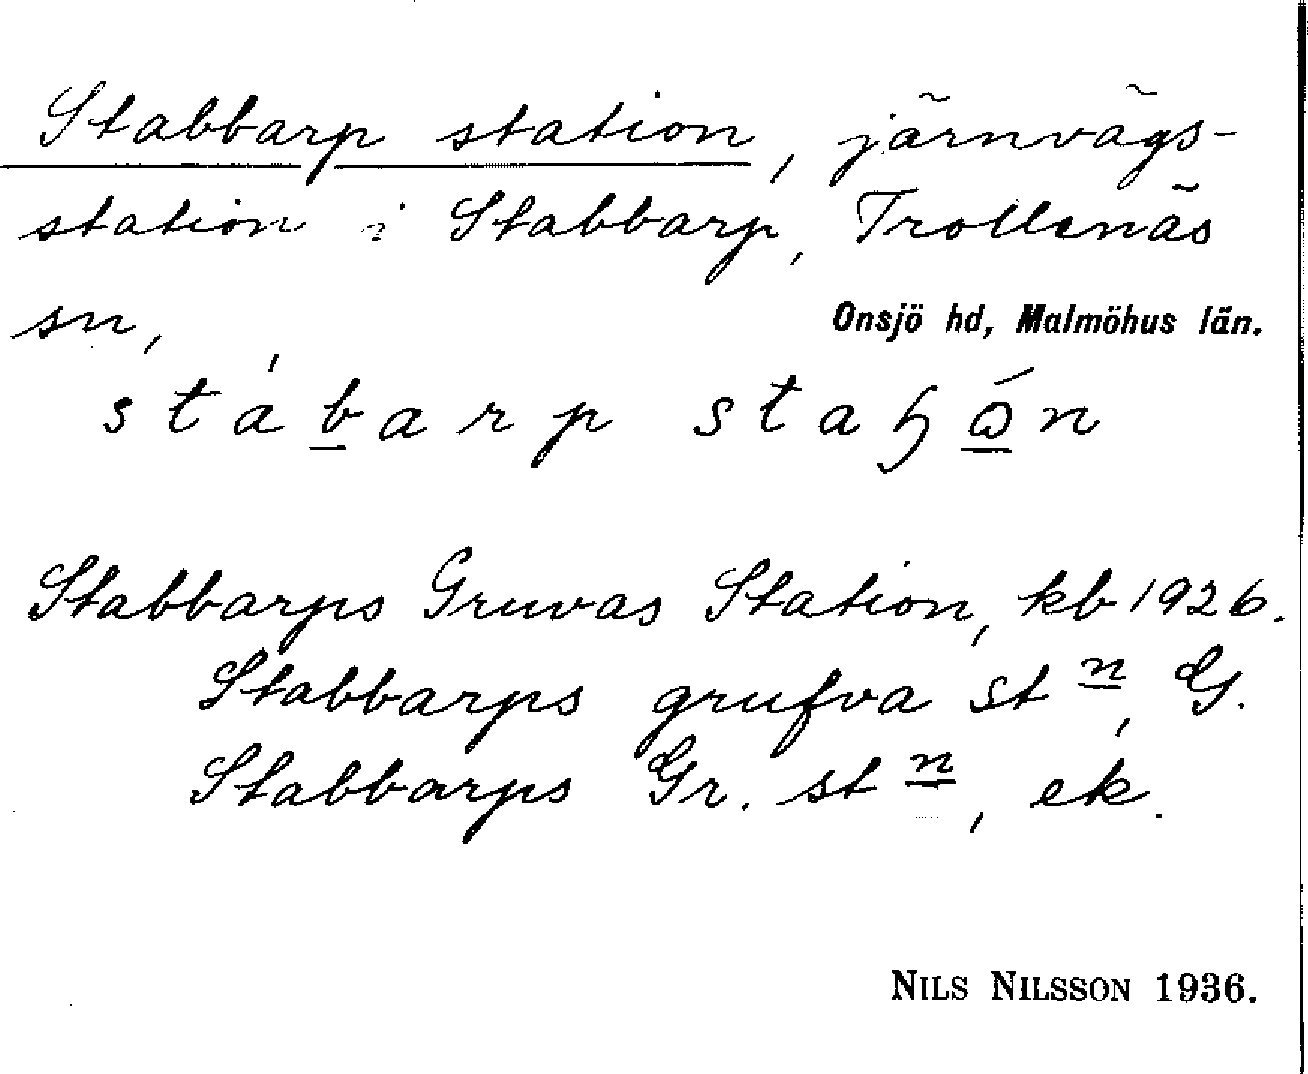 Stabbarp station, järnvägs-
station i Stabbarp, Trollenäs
sn, Onsjö hd, Malmöhus län.
stábarp staɧón
Stabbarps Gruvas Station, kb 1926.
Stabbarps grufva stn, G.
Stabbarps Gr. stn, ek.
NILS NILSSON 1936.